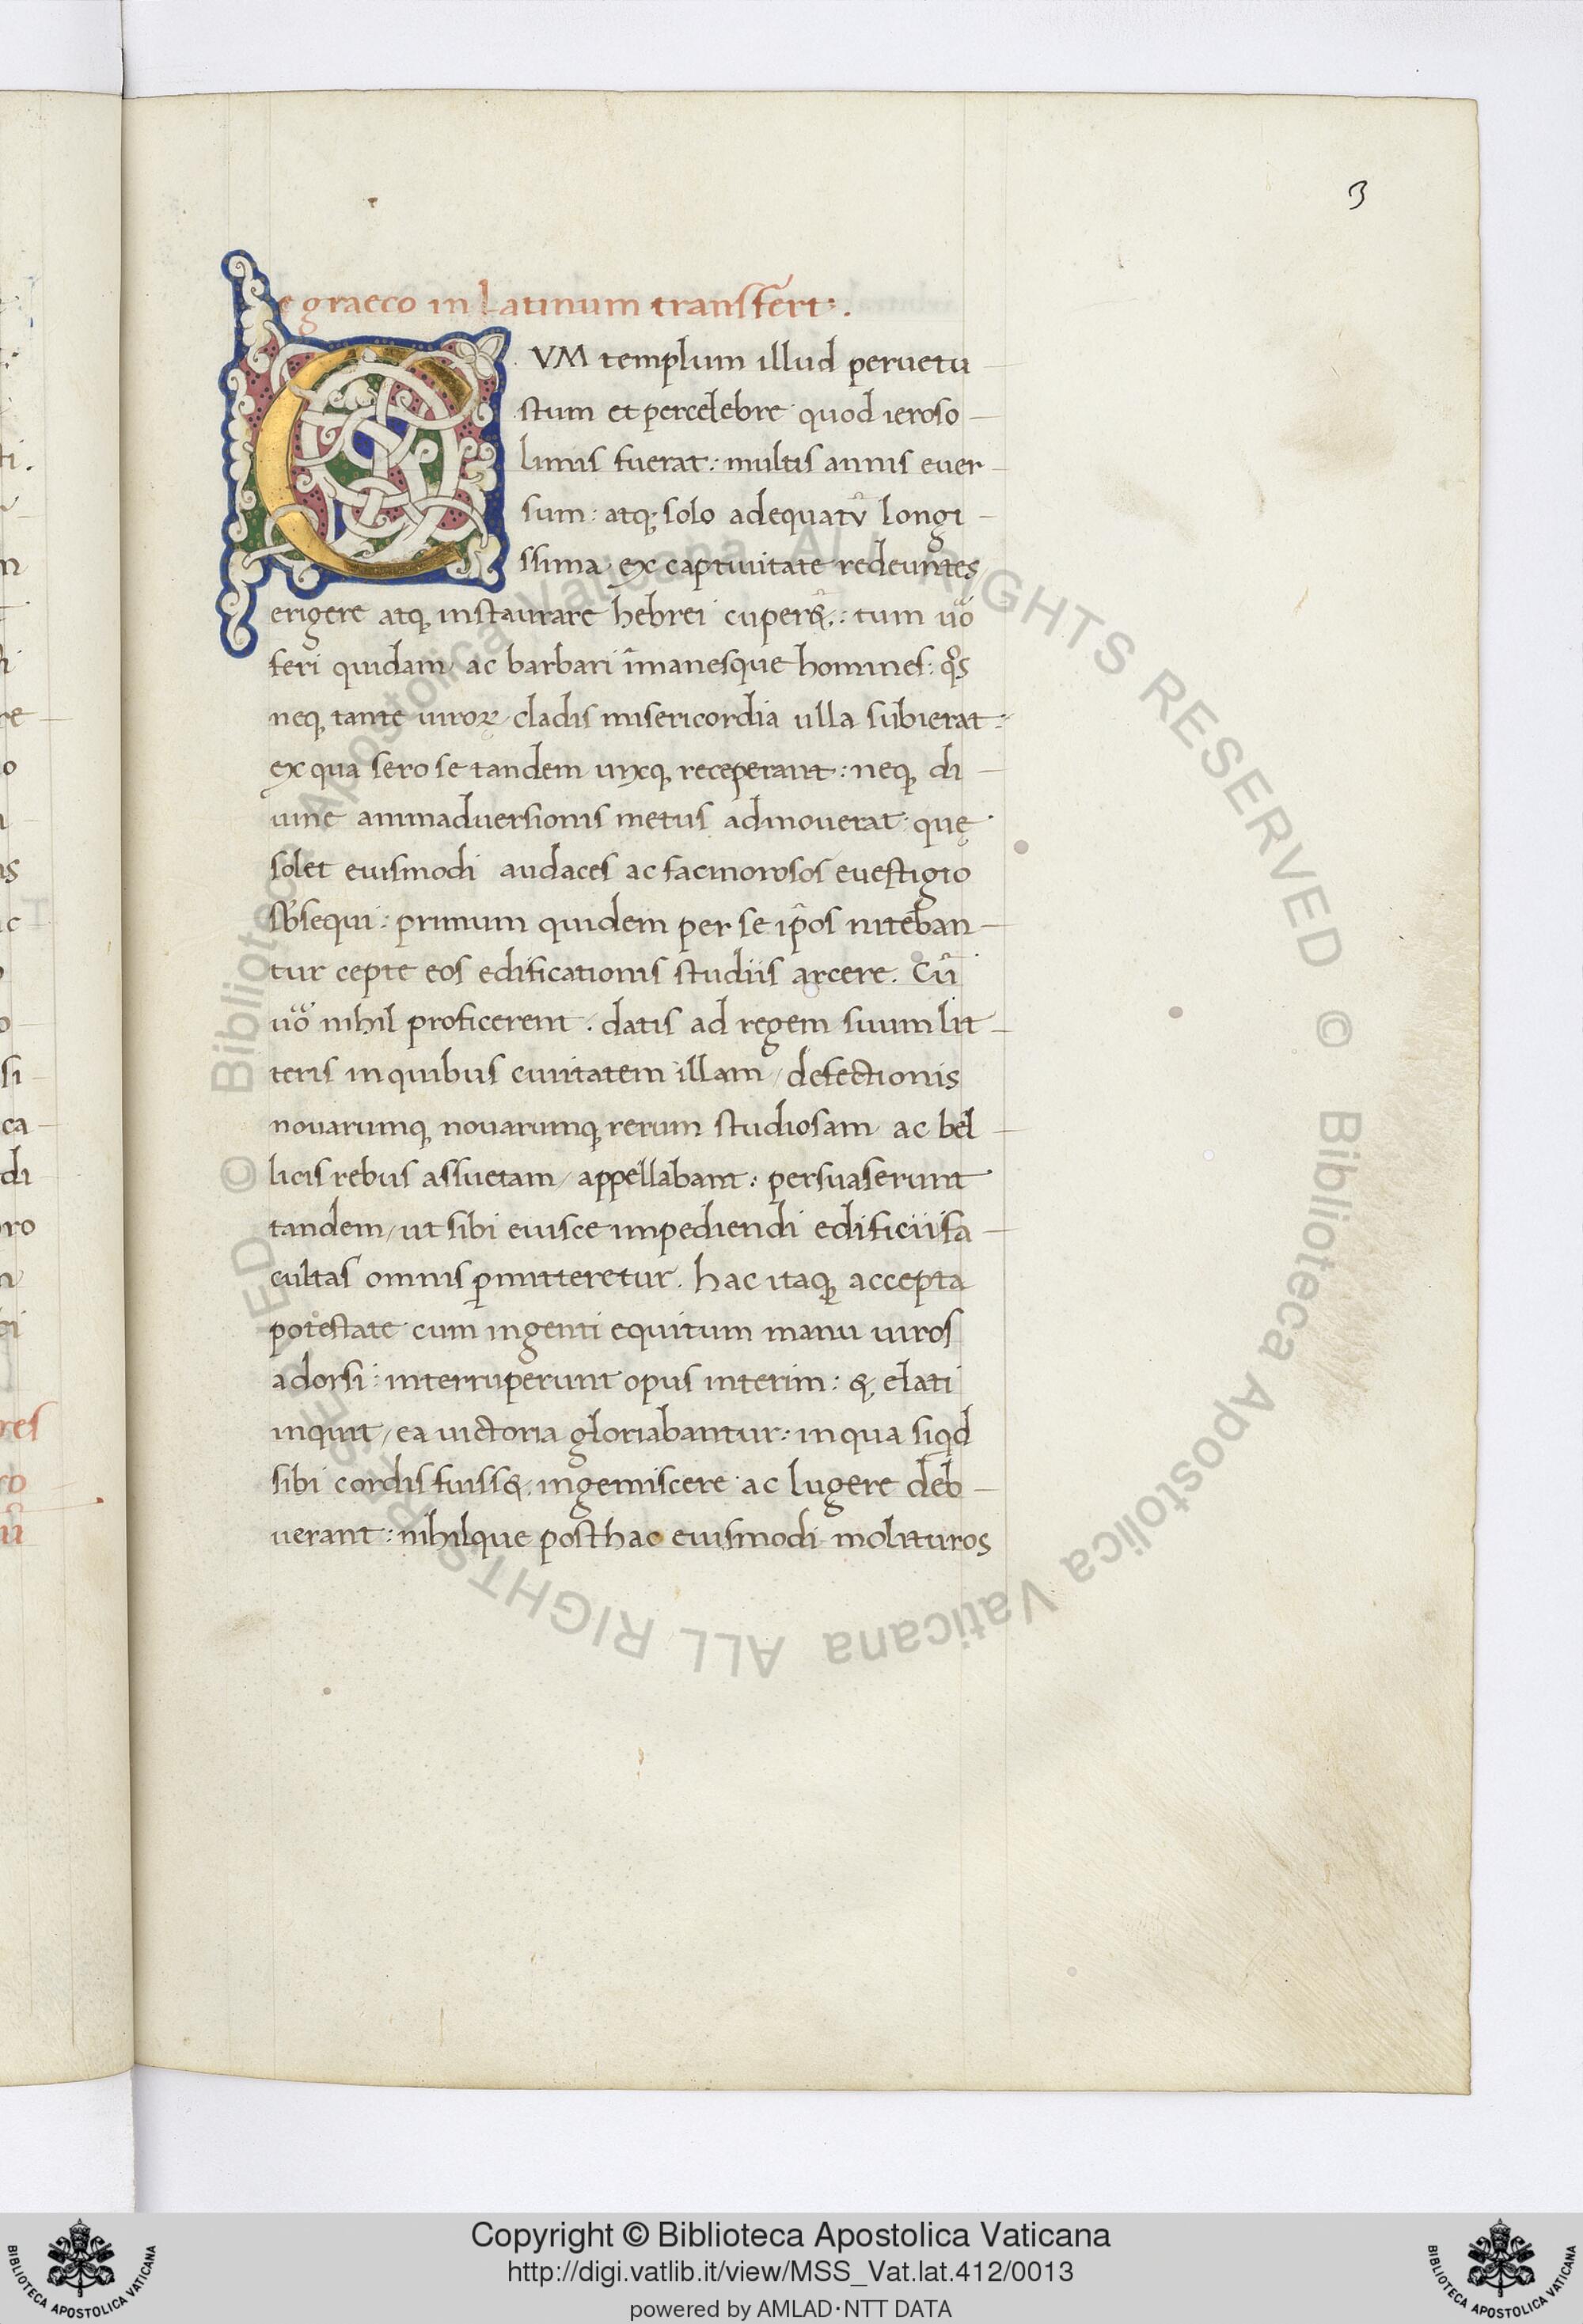 3
e graeco in Latinum transfert:.
CVM templum illud peruetu
stum et percelebre quod ieroso
limis fuerat: multis annis euer
sum: atq; solo adequatũ longi
ssima ex captiuitate redeuntes
erigere atq; instaurare hebrei cuper&: tum uo
feri quidam ac barbari ĩmanesque homines: qos
neq; tante uiroꝝ cladis misericordia ulla subierat:
ex qua sero se tandem uixq; receperant: neq; di
uine animaduersionis metus admouerat quę
solet eiusmodi audaces ac facinorosos euestigio
sb̃sequi: primum quidem per se ip̃os niteban
tur cepte eos edificationis studiis arcere. Cũ
uo nihil proficerent. datis ad regem suum lit
teris in quibus ciuitatem illam / defectionis
nouarumq; nouarumq; rerum studiosam ac bel
licis rebus assuetam / appellabant: persuaserunt
tandem / ut sibi eiusce impediendi edificii fa
cultas omnis ꝑmitteretur. hac itaq; accepta
potestate cum ingenti equitum manu uiros
adorsi: interruperunt opus interim: & elati
inquit / ea uictoria gloriabantur: in qua siqd
sibi cordis fuiss& ingemiscere ac lugere deb
uerant: nihilque posthac eiusmodi molituros
© Biblioteca Apostolica Vaticana ALL RIGHTS RESERVED © Biblioteca Apostolica Vaticana ALL RIGHTS RESERVED
BIBLIOTECA APOSTOLICA VATICANA
Copyright © Biblioteca Apostolica Vaticana
http://digi.vatlib.it/view/MSS_Vat.lat.412/0013
powered by AMLAD·NTT DATA
BIBLIOTECA APOSTOLICA VATICANA